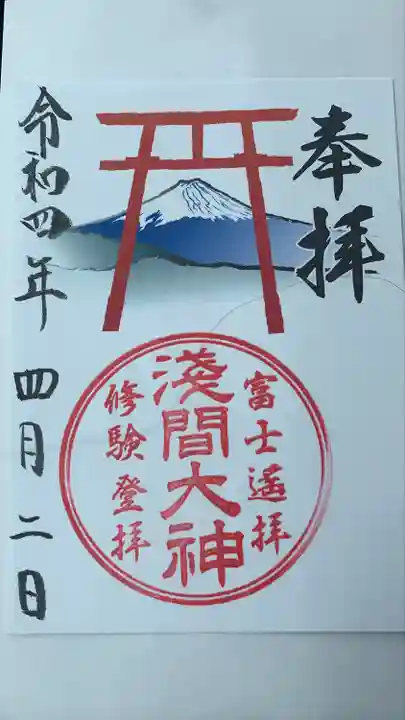 奉拝
富士遙拝
淺間大神
修験登拝
令和四年 四月二日